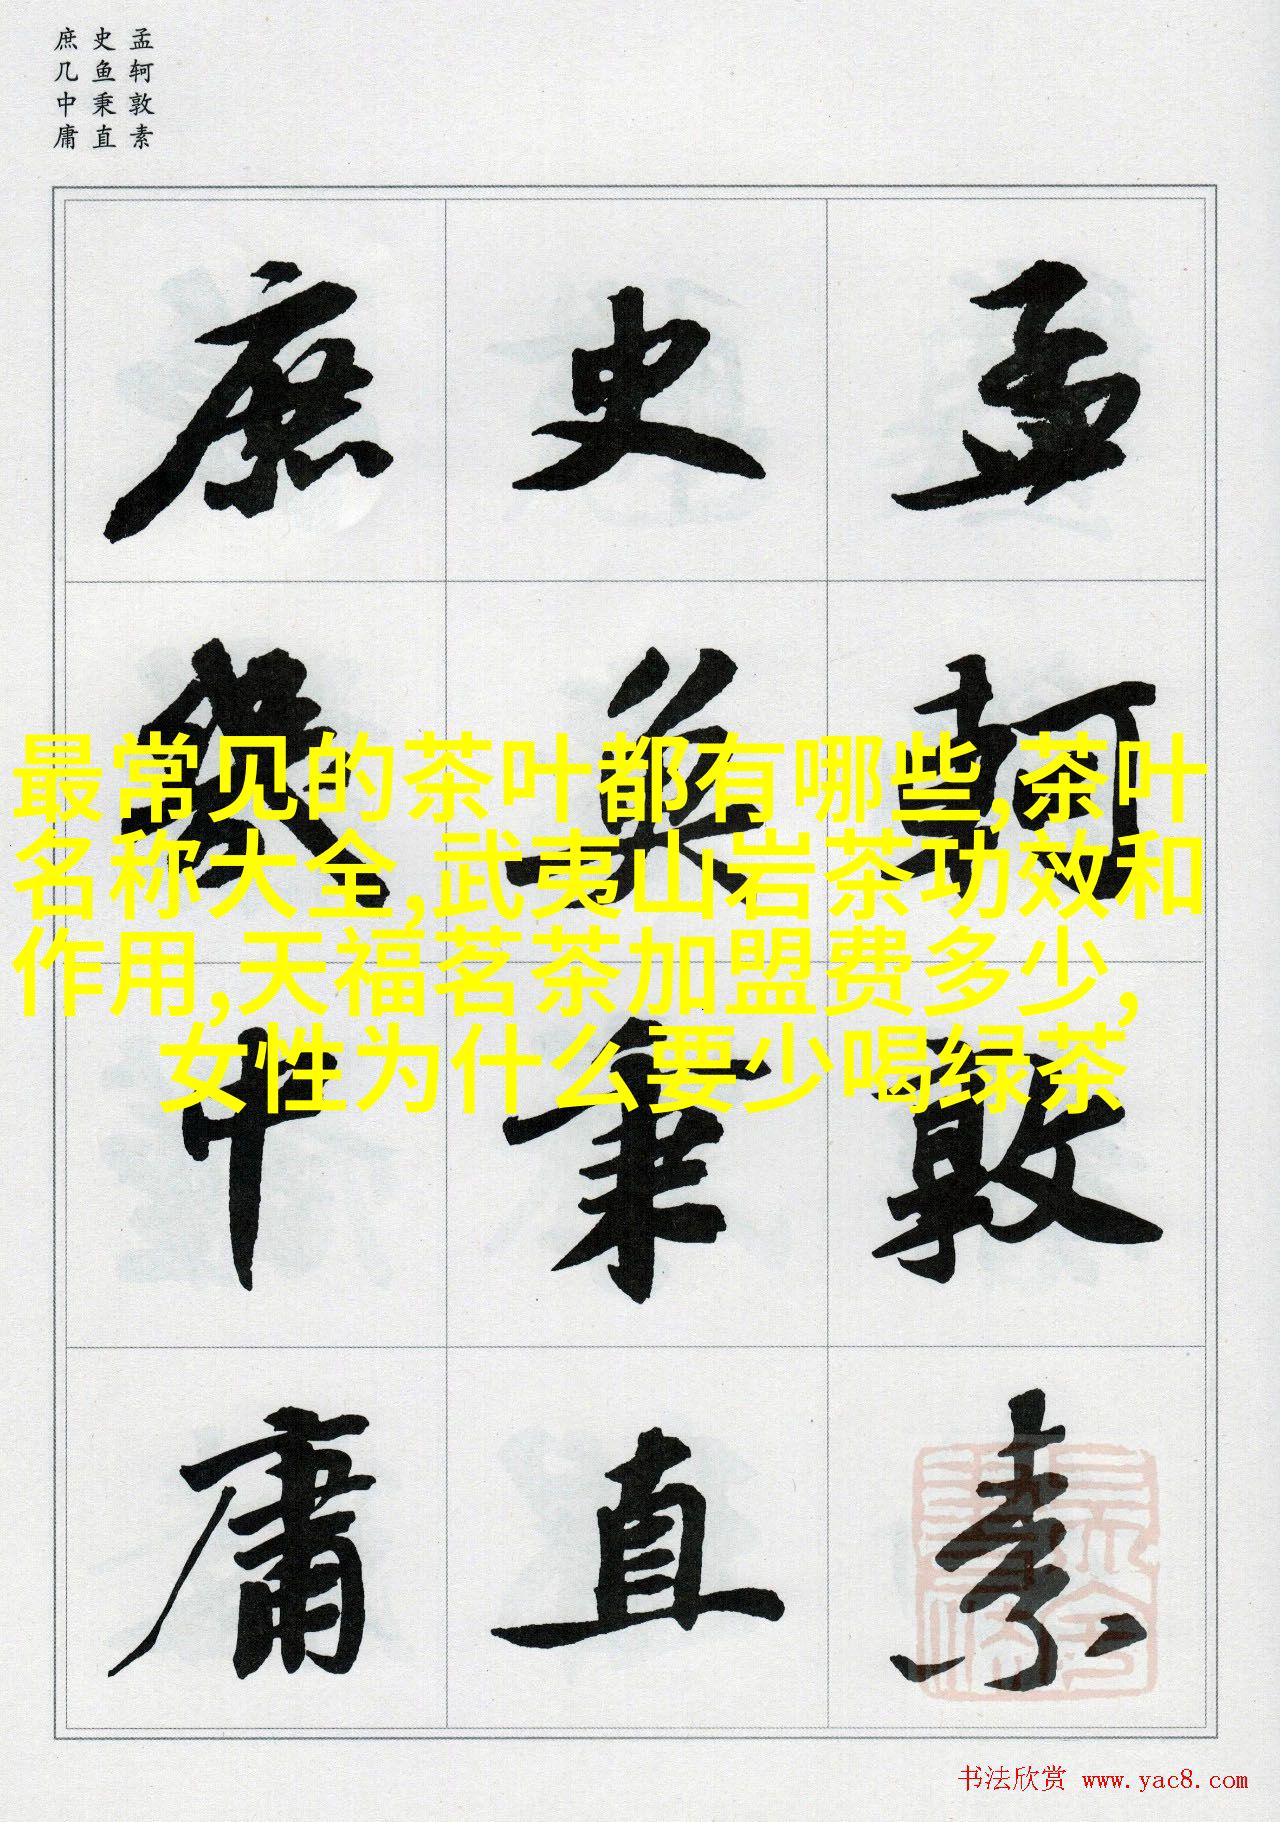 孟轲敦素
史鱼秉直
庶几中庸
孟轲敦素
史鱼秉直
庶几中庸
最常见的茶叶都有哪些,茶叶
名称大全,武夷山岩茶功效和
作用,天福茗茶加盟费多少,
女性为什么要少喝绿茶
书法欣赏 www.yac8.com